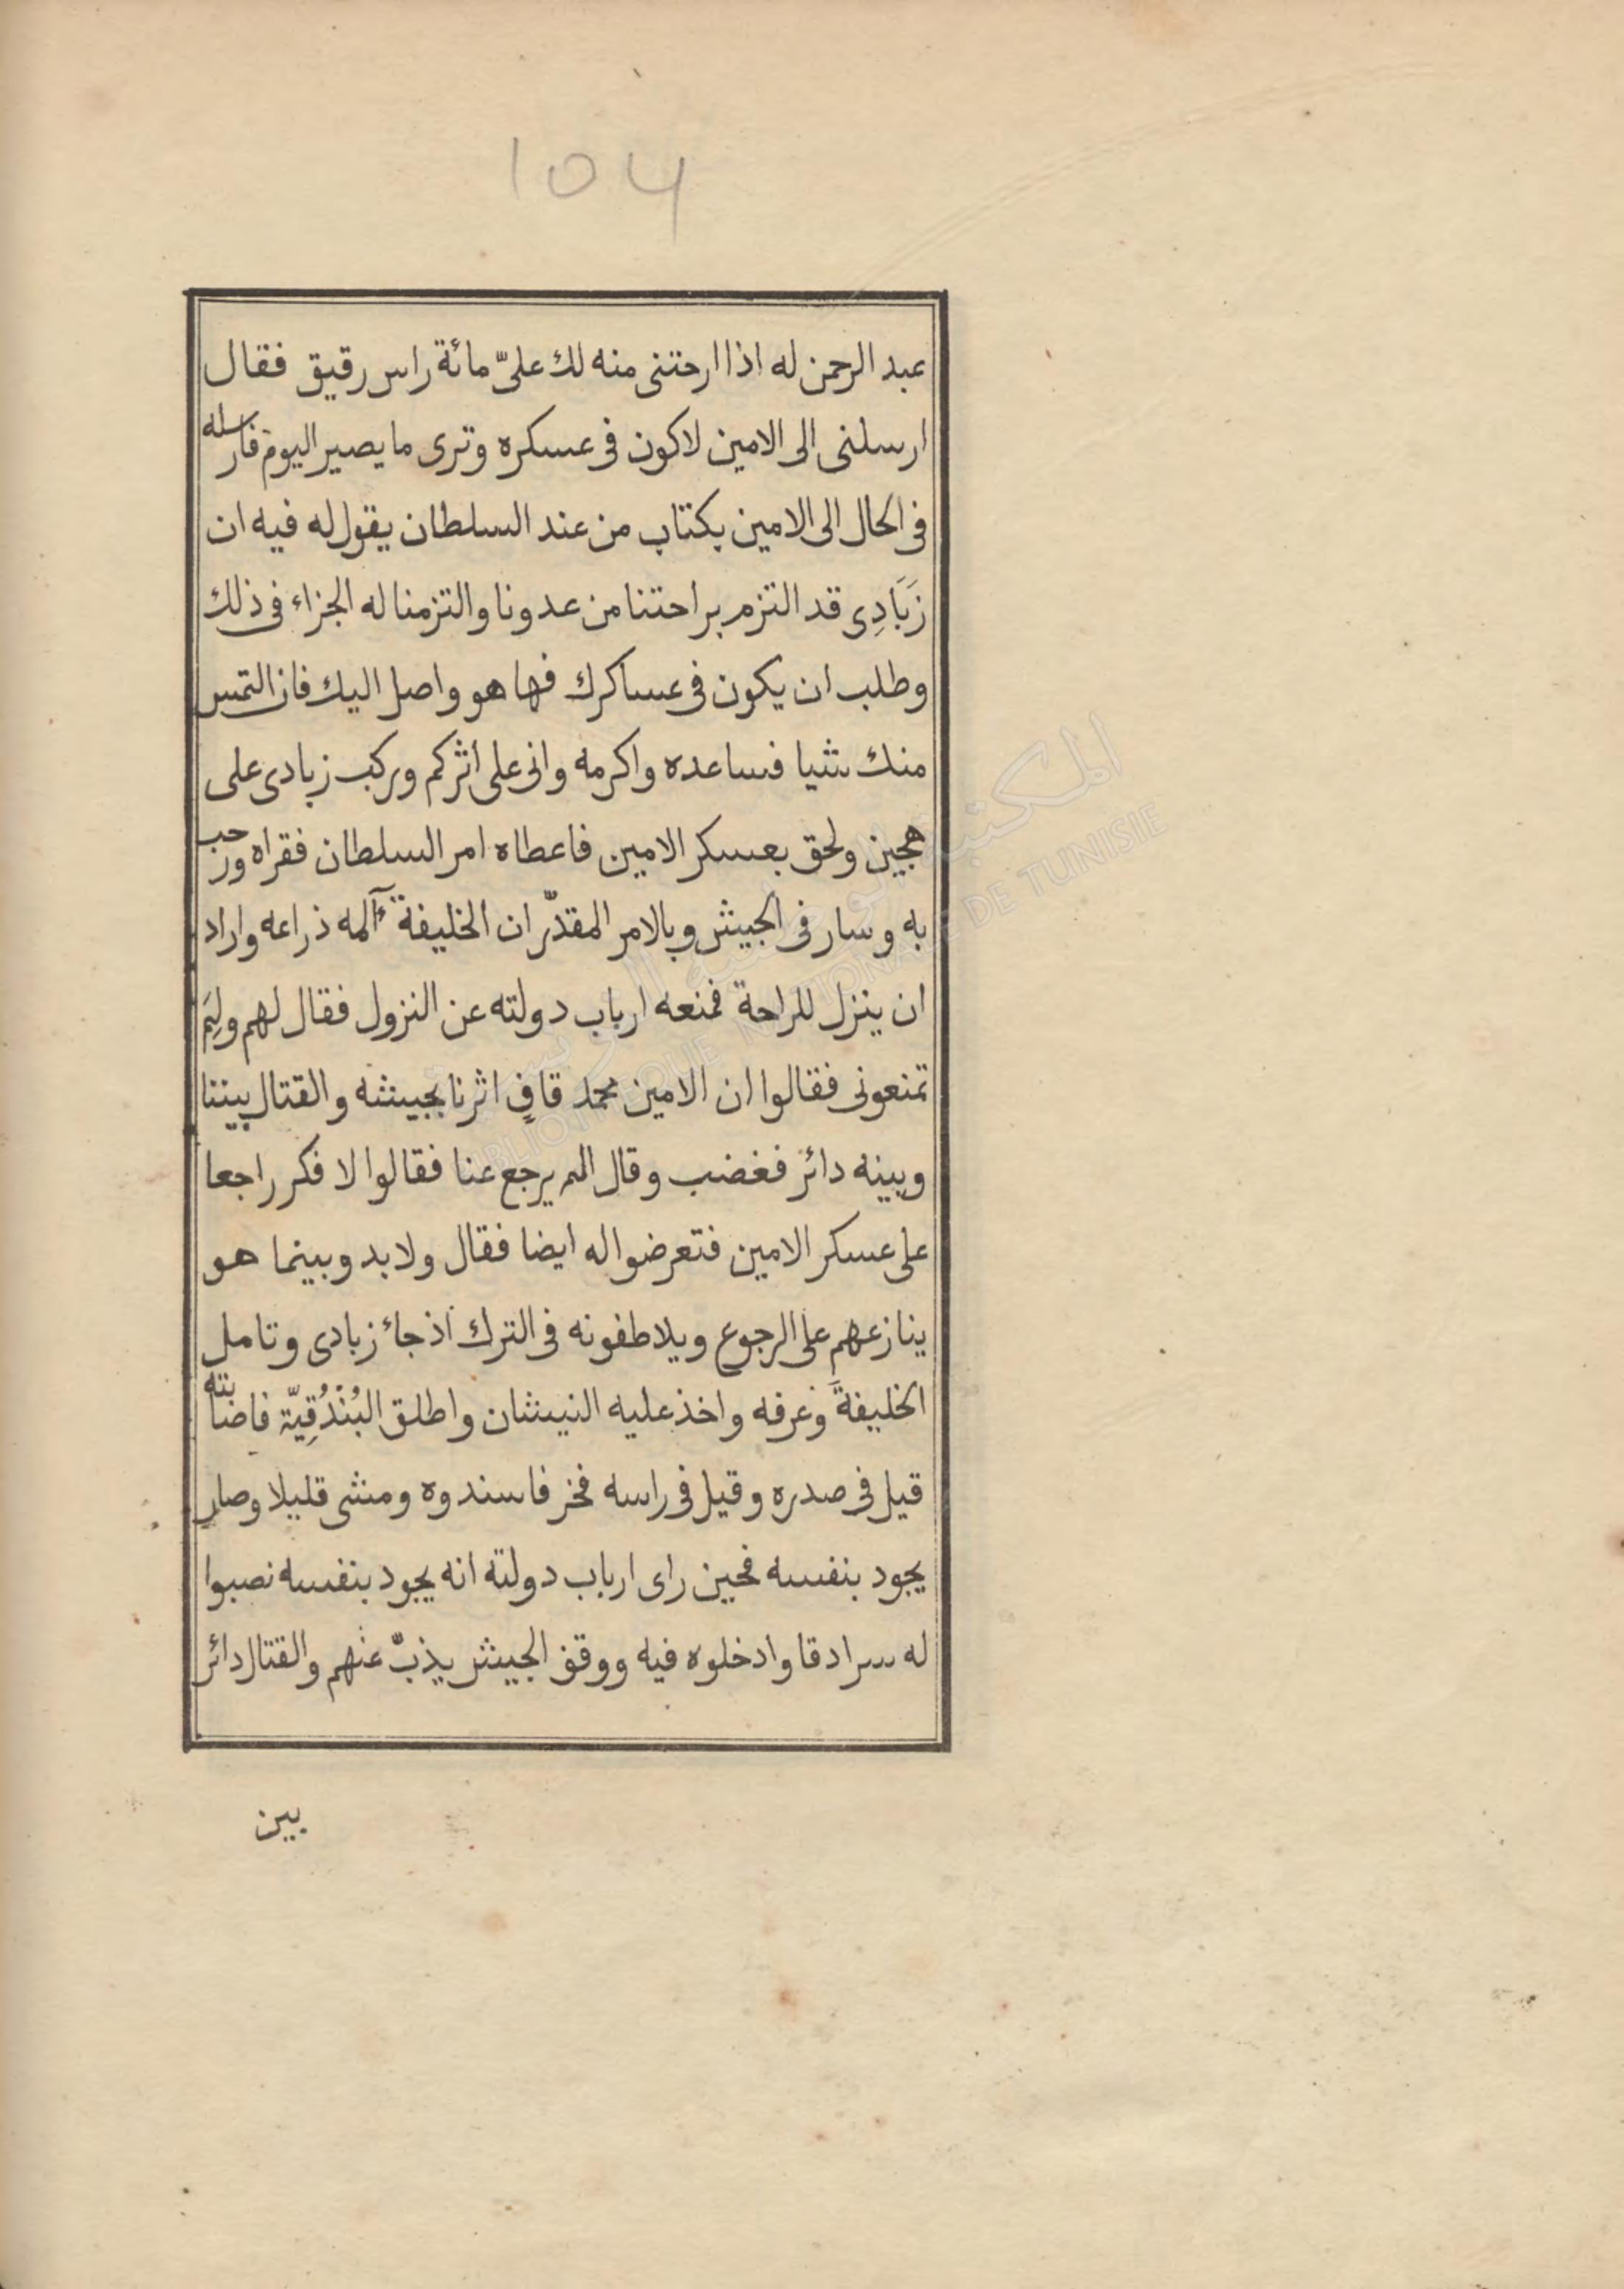 104
عبد الرحمن له اذا ارحتنى منه لك علىّ مائة راس رقيق فقال
ارسلنى الى الامين لاكون فى عسكره وترى ما يصير اليوم فارسله
فى الحال الى الامين بكتاب من عند السلطان يقول له فيه ان
زَبَادِى قد التزم براحتنا من عدونا والتزمنا له الجزاء فى ذلك
وطلب ان يكون فى عساكرك فها هو واصل اليك فان التمس
منك شيا فساعده واكرمه وانى على اثركم وركب زبادى على
هجين ولحق بعسكر الامين فاعطاه امر السلطان فقراه ورحب
به وسار فى الجيش وبالامر المقدّر ان الخليفة آلمه ذراعه واراد
ان ينزل للراحة فمنعه ارباب دولته عن النزول فقال لهم ولِمَ
تمنعونى فقالوا ان الامين محمد قافٍ اثرنا بجيشه والقتال بيننا
وبينه دائر فغضب وقال الم يرجع عنا فقالوا لا فكر راجعا
على عسكر الامين فتعرضوا له ايضا فقال ولا بد وبينما هو
ينازعهم على الرجوع ويلاطفونه فى الترك اذ جاء زبادى وتامل
الخليفةَ وعرفه واخذ عليه النيشان واطلق البُنْدُقِيّة فاصابته
قيل فى صدره وقيل فى راسه فخر فاسندوه ومشى قليلا وصار
يجود بنفسه فحين راى ارباب دولته انه يجود بنفسه نصبوا
له سرادقا وادخلوه فيه ووقف الجيش يذبّ عنهم والقتال دائر
بين
المكتبة الوطنية التونسية
BIBLIOTHEQUE NATIONALE DE TUNISIE